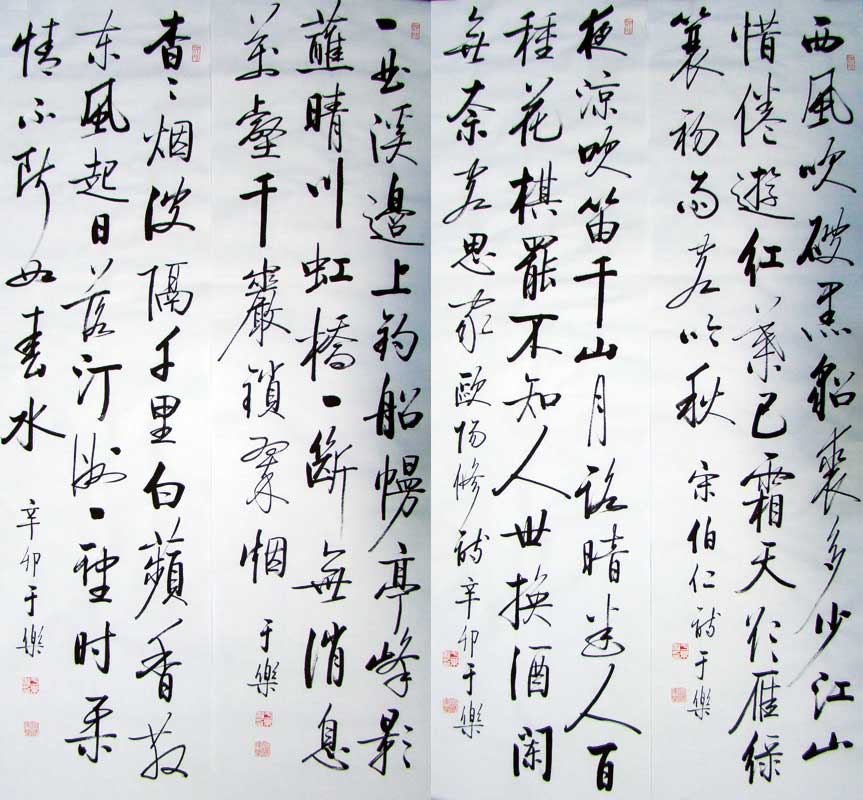 西風吹破黑貂裘多少江山
惜倦遊紅葉已霜天欲雁綠
簑初雨客吟秋 宋伯仁詩于樂
夜涼吹笛千山月路暗迷人百
種花棋罷不知人世換酒闌
無奈客思家歐陽修詩辛卯于樂
一曲溪邊上釣船幔亭峰影
蘸晴川虹橋一斷無消息
萬壑千巖鎖翠烟 于樂
杳々烟波隔千里白蘋香散
東風起日落汀洲一望时柔
情不断如春水 辛卯于樂